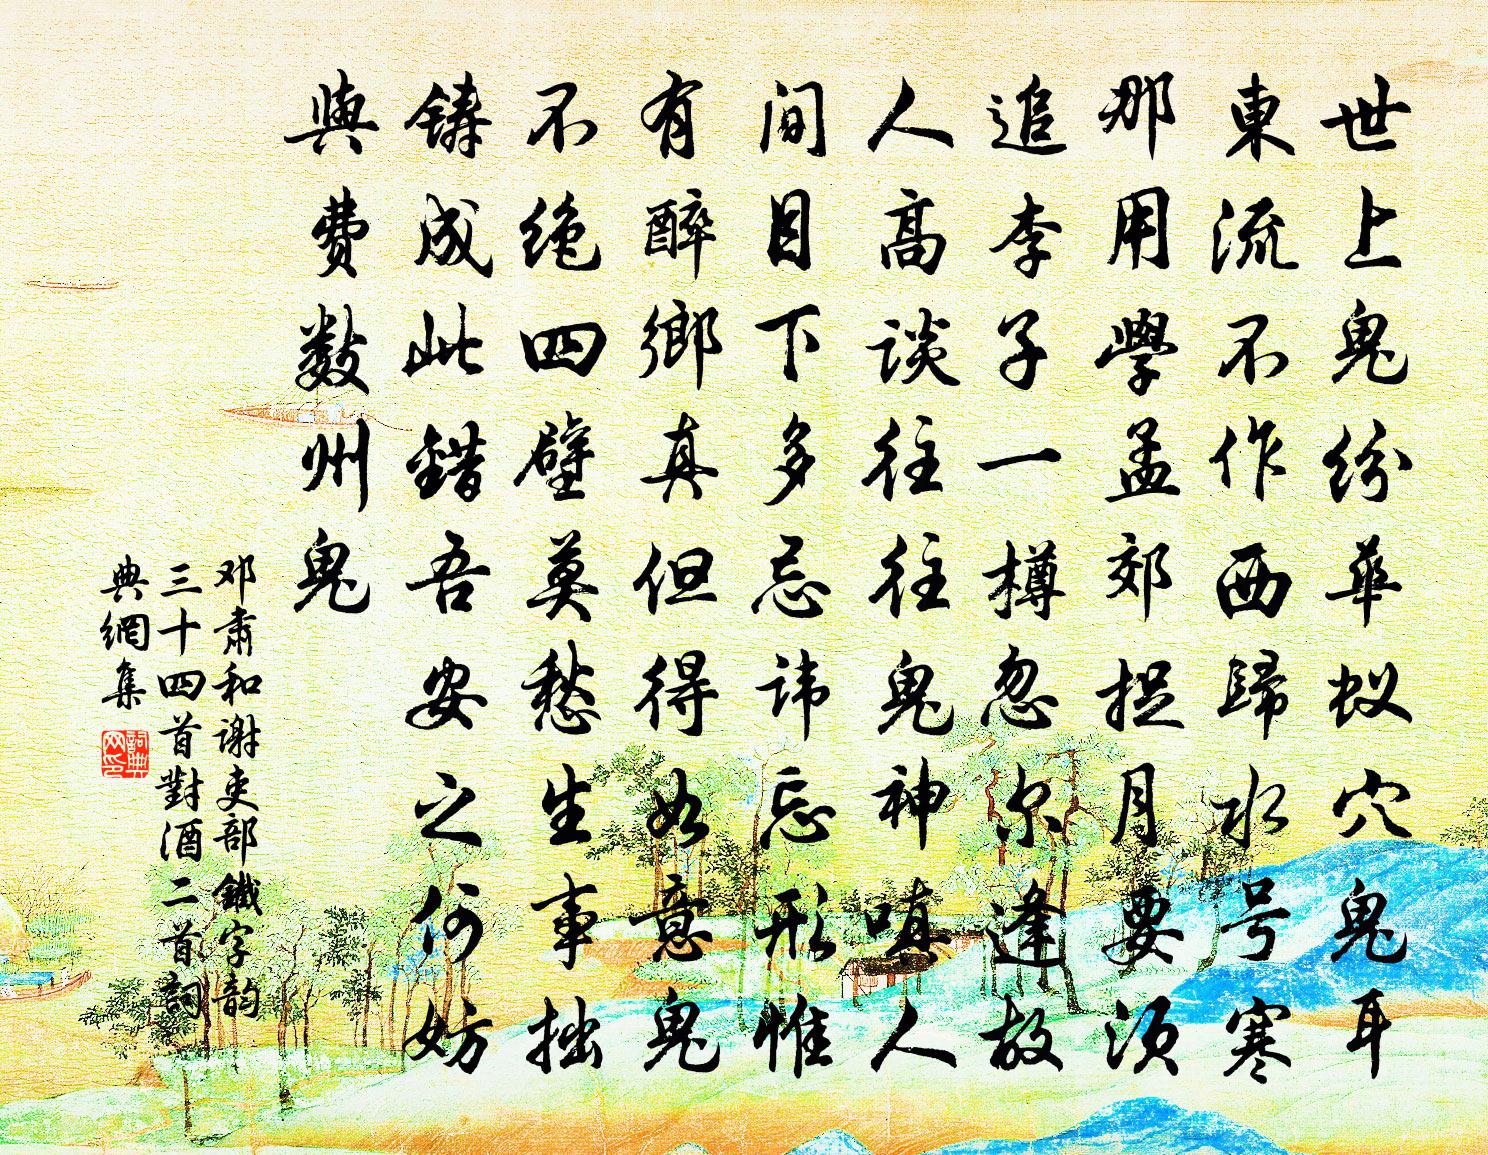 世上鬼纷華蚁穴鬼耳
東流不作西歸水号寒
那用學孟郊捉月要须
追李子一樽忽尔逢故
人高谈往往鬼神嗔人
间目下多忌讳忘形惟
有醉鄉真但得如意鬼
不绝四壁莫愁生事拙
铸成此錯吾安之何妨
與费数州鬼
邓肃和谢吏部鐵字韵
三十四首對酒二首詞
典網集
詞典
网印